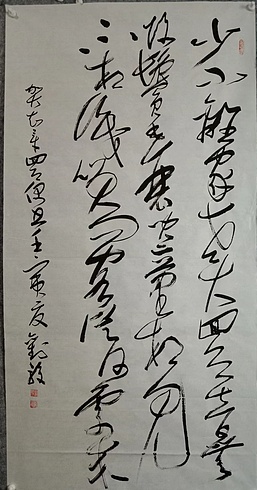 少小離家老大回鄉音無
改鬢毛衰兒童相見
不相識笑問客從何處來
賀知章回鄉偶書壬寅夏劉